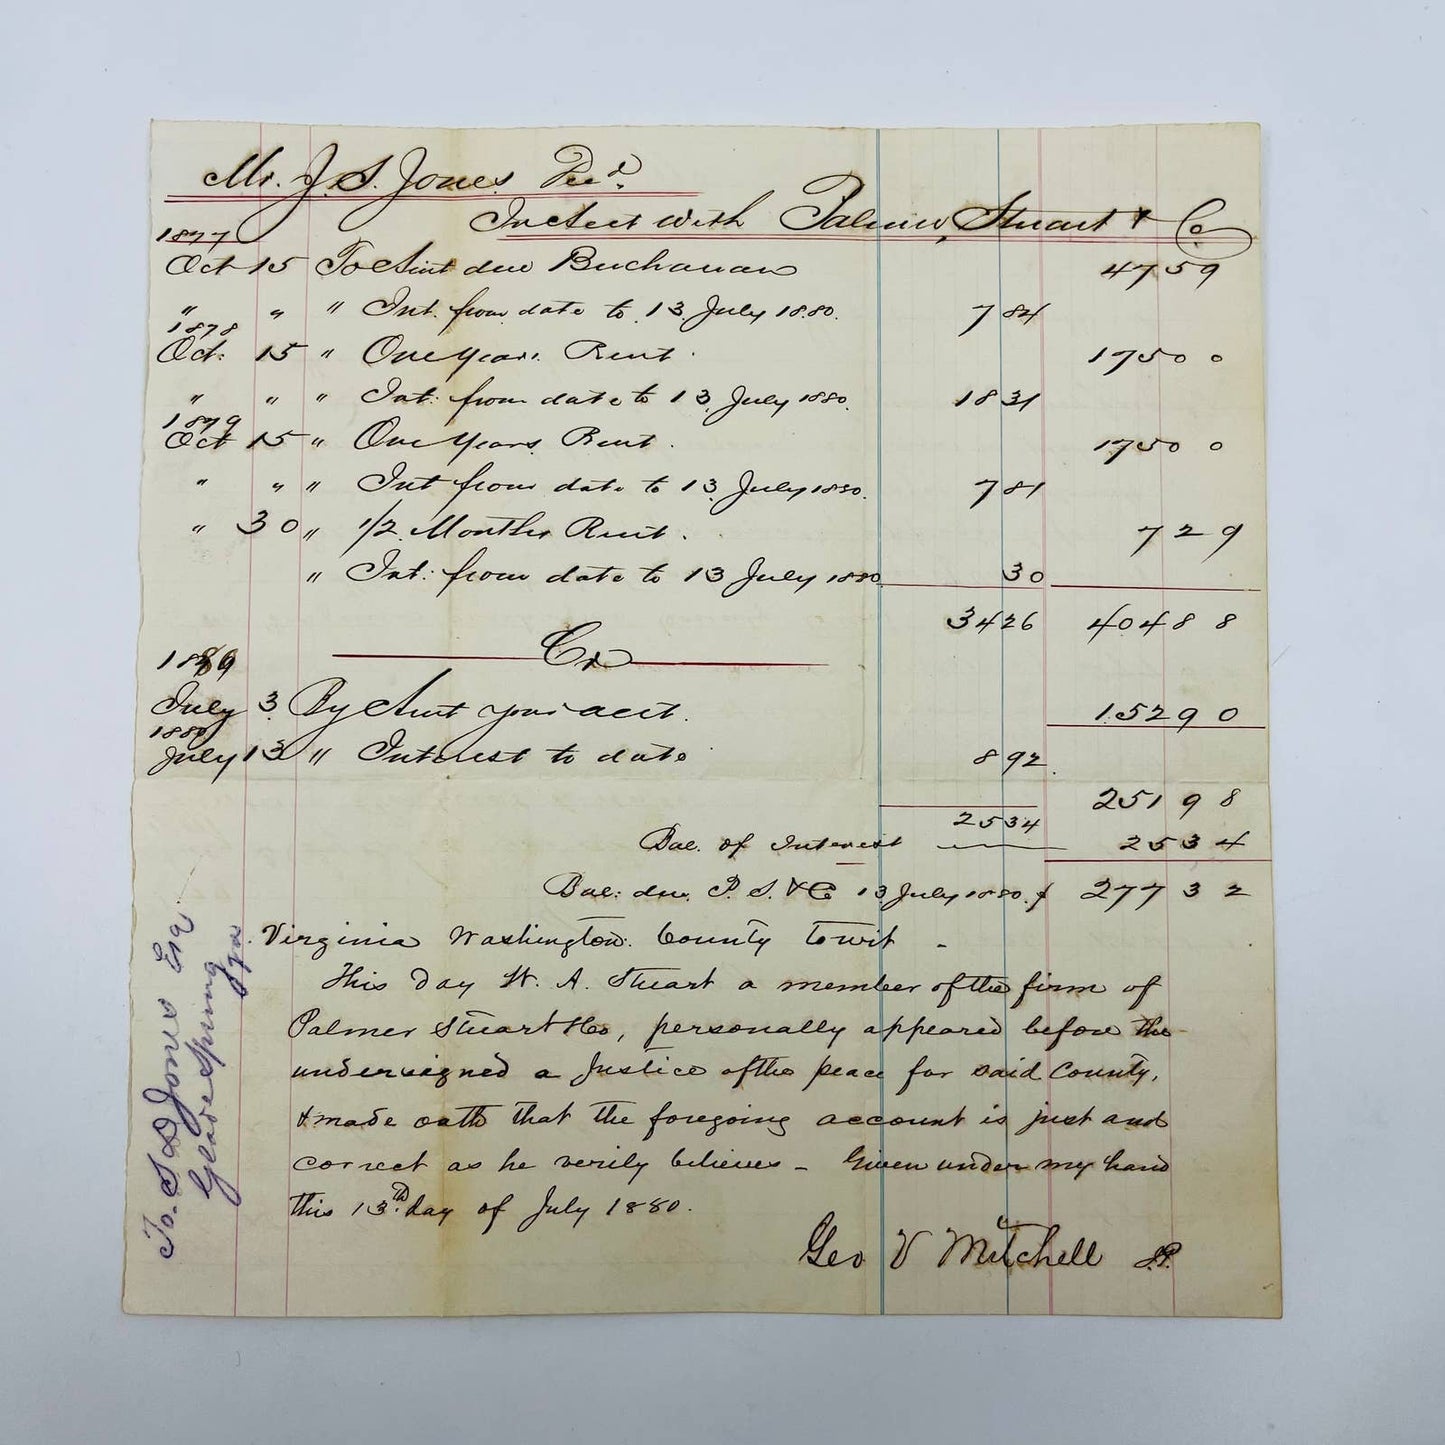 Mr. J. S. Jones Dec'd.
In Acct with Palmer, Stuart & Co
1877
Oct 15 To Amt due Buchanan 47 59
" " " Int. from date to 13 July 1880. 7 84
1878
Oct. 15 " One Years Rent. 175 00
" " " Int: from date to 13 July 1880. 18 31
1879
Oct 15 " One Years Rent. 175 00
" " " Int from date to 13 July 1880. 7 81
" 30 " 1/2 Months Rent. 7 29
" Int: from date to 13 July 1880 30
34 26 404 88
Cr
1879
July 3 By Amt your acct. 152 90
1880
July 13 " Interest to date 8 92
251 98
25 34
Bal. of Interest 25 34
Bal: due P. S. & Co 13 July 1880. $ 277 32
Virginia Washington County towit -
This day W. A. Stuart a member of the firm of
Palmer Stuart & Co, personally appeared before the
undersigned a Justice of the peace for said County,
& made oath that the foregoing account is just and
correct as he verily believes - Given under my hand
this 13th day of July 1880.
Geo V Mitchell J.P.
To. S D Jones Esq
Glade Spring
Va.